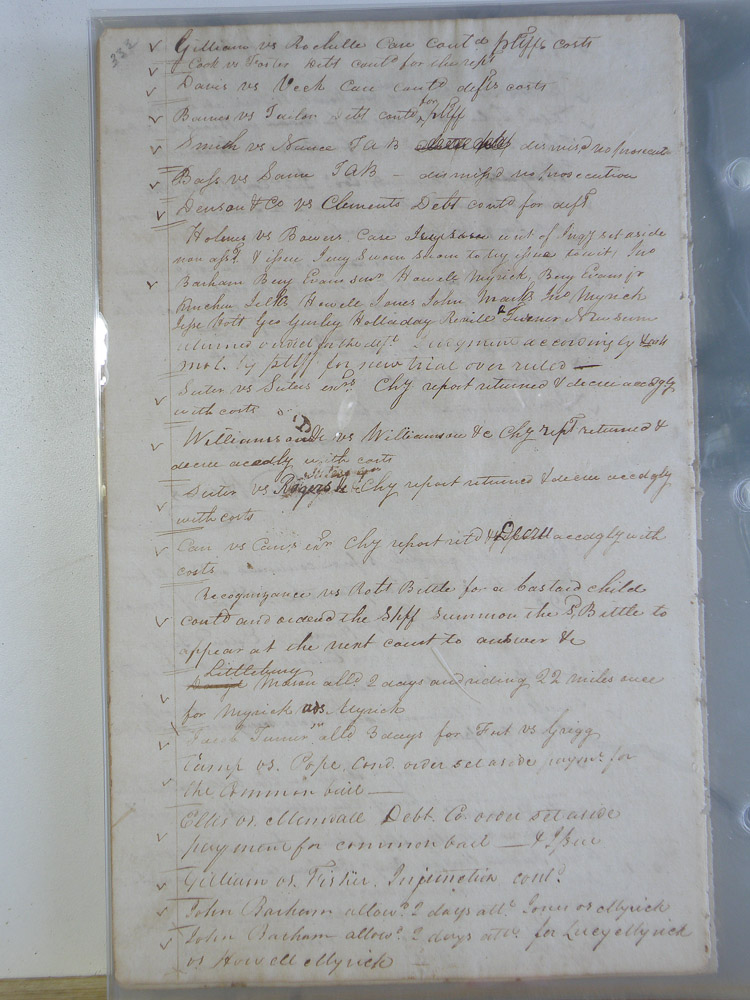 332
Gilliam vs Rochelle Case contd pltffs costs
Cook vs Foster Debt contd for
Davis vs Veck Case contd defts costs
Barnes vs Taylor Debt contd for pltff
Smith vs Nance TAB dismissd no prosecutn
Bass vs Same TAB - dismissd no prosecution
Denson & Co vs Clements Debt contd for deft
Holmes vs Bowers Case writ of Inqy set aside
non asst & issue Jury Sworn to try issue towit, Jno
Barham Benj Evans senr Howell Myrick, Benj Evans jr
Howell Jones John Marks Jno Myrick
Jesse Hott Geo Gurley Holladay Turner Newsum
returned verdict for the deft Judgment accordingly
mot. by pltff for new trial over ruled —
Suter vs Suters exrs Chy report returned & decree accdgly
with costs
Williamson &c vs Williamson &c Chy rept returned &
decree accdly with costs
Suter vs Rogers &c Chy report returned & decree accdgly
with costs
Carr vs Carrs exr Chy report retd & Decree accdgly with
costs
Recognizance vs Robt Bittle for a bastard child
contd and ordered the Shff summon the sd Bittle to
appear at the next court to answer &c
Littlebury
Mason alld 2 days and riding 22 miles once
for Myrick ads Myrick
Turner alld 3 days for Fort vs Grigg
vs. Pope. Cond. order set aside paymt for
the Common bail —
Ellis vs. Debt. Co. order set aside
payment for common bail — & Issue
Gilliam vs. Fisher. Injunction contd
John Barham allowd 2 days attce Jones vs Myrick
John Barham allowd 2 days attce for Lucy Myrick
vs Howell Myrick —